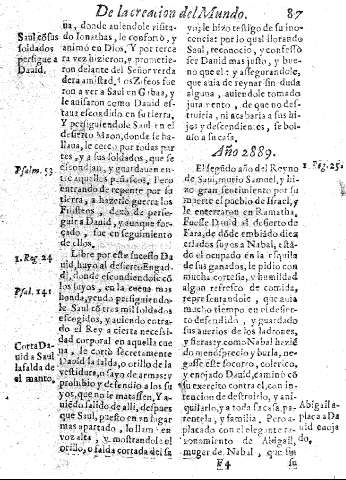 De la creacion del Mundo. 87
ña, donde auiendole visita-
do Ionathas, le confortó, y
animó en Dios. Y por terce
ra vez hizieron, y prometie-
ron delante del Señor verda
dera amistad. Los Zifeos fue
ron a ver a Saul en Gabaa, y
le auisaron como Dauid es-
taua escondido en su tierra.
Y persiguiendole Saul en el
desierto Maon, donde se ha-
llaua, le cercò por todas par
tes, y a sus soldados, que se
escondian, y guardauan en-
tre aquellos peñascos. Pero
entrando de repente por su
tierra, a hazerle guerra los
Filisteos, dexò de perse-
guir a Dauid, y aunque for-
çado, fue en seguimiento
de ellos.
Libre por este sucesso Da
uid, huyò al desierto Engad-
di, donde escondiendose cõ
los suyos, en la cueua mas
honda, y endo persiguiendo-
le Saul cõ tres mil soldados
escogidos, y auiendo entra-
do el Rey a cierta necessi-
dad corporal en aquella cue
ua, le cortò secretamente
Dauid la falda, o orillo de la
vestidura, o saya de armas; y
prohibio y defendio a los su
yos, que no le matassen. Y a-
uiẽdo salido de alli, despues
que Saul, puesto en vn lugar
mas apartado, lo llamò en
voz alta, y mostrandole el
orillo, o falda cortada del sa
Saul cõ sus
soldados
persigue a
Dauid.
Psalm. 53.
1. Reg. 24
Psal. 141
Corta Da-
uid a Saul
la falda de
el manto,
yo; le hizo testigo de su ino-
cencia: por lo qual llorando
Saul, reconocio, y confessò
ser Dauid mas justo, y bue-
no que el: y assegurandole,
que auia de reynar sin duda
alguna, auiendole tomado
juramento, de que no des-
truiria, ni acabaria a sus hi-
jos y descendientes, se bol-
uio a su casa.
Año 2889.
El segũdo año del Reyno
de Saul, murio Samuel, y hi-
zo gran sentimiento por su
muerte el pueblo de Israel, y
le enterraron en Ramatha.
Fuesse Dauid al desierto de
Fara, de dõde embiado diez
criados suyos a Nabal, estã-
do el ocupado en la esquila
de sus ganados, le pidio con
mucha cortesia, y humildad
algun refresco de comida,
representandole, que auia
mucho tiempo en el desier-
to defendido, y guardado
sus aueríos de los ladrones,
y fieras: y como Nabal haziẽ
do menosprecio y burla, ne-
gasse este socorro, colerico,
y enojado Dauid, caminò cõ
su exercito contra el, con in-
tencion de destruirlo, y ani-
quilarlo, y a toda su casa, pa-
rentela, y familia. Pero a-
placado con el elegante ra-
zonamiento de Abigail,
muger de Nabal, que sin
F 4 su
1. Reg. 25.
Abigail a-
placa a Da
uid enoja
do.